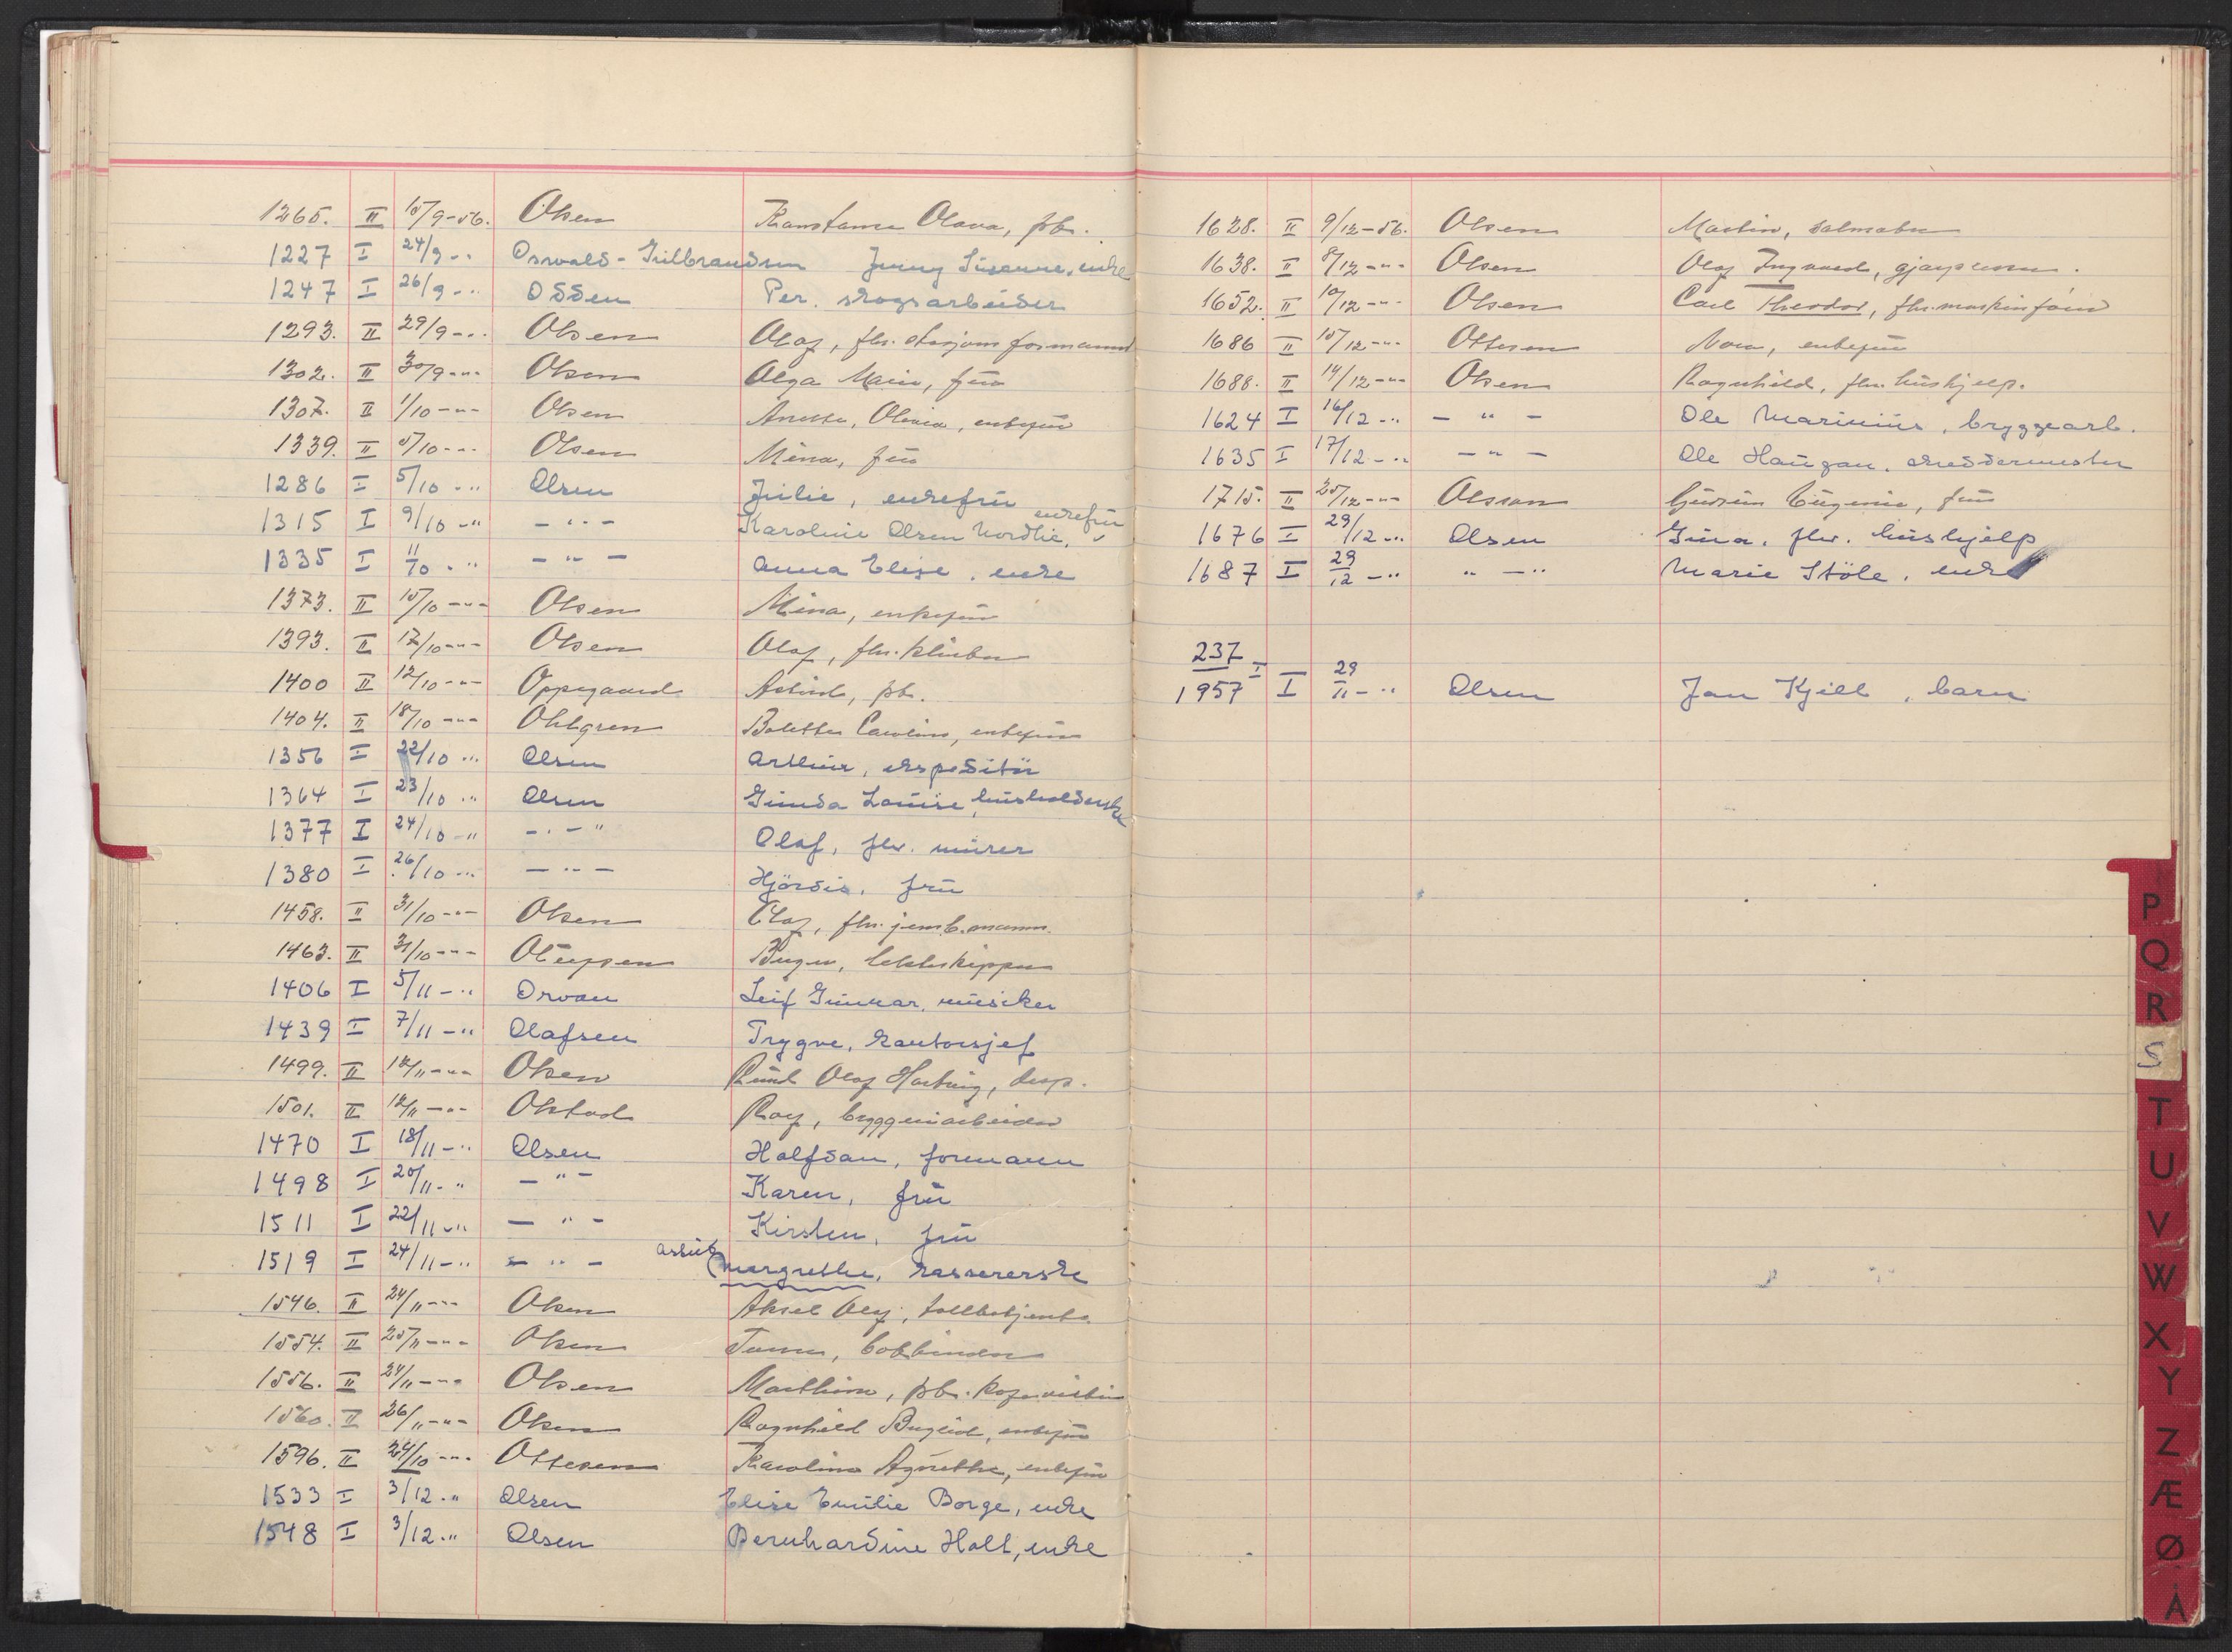 1265. II 15/9-56. Olsen Konstanse Olava, pb.
1227 I 24/9 -" Osvald-Gulbrandsen Jenny Susanne, enke
1247 I 26/9 -" Odden Per. skogsarbeider
1293. II 29/9 -" Olsen Olaf, fhv. stasjonsformann
1302. II 30/9 -"- Olsen Olga Marie, frü
1307. II 1/10 -"- Olsen Anette, Olivia, enkefrü
1339. II 5/10 -"- Olsen Mina, frü
1286 I 5/10 -" Olsen Julie, enkefrü
1315 I 9/10 -" - " - Karoline Olsen Nordlie, enkefrü
1335 I 11/10 -" - " - Anna Elise, enke
1373. II 15/10 -"- Olsen Mina, enkefrü
1393. II 17/10 -"- Olsen Olaf, fhv.
1400 II 12/10 -"- Oppegaard Astrid, pb.
1404. II 18/10 -"- Ohlgren Bolette Caroline, enkefrü
1356 I 22/10 -" Olsen Arthur, ekspeditür
1364 I 23/10 -" Olsen Gunda Louise, husholderske
1377 I 24/10 -" - " - " Olaf, fhv. mürer
1380 I 26/10 -" - " - Hjördis, frü
1458. II 31/10 -"- Olsen Olaf, fhv. jernb.mann.
1463. II 31/10 -"- Olaussen Birger, lekterskipper
1406 I 5/11 -" Orvan Leif Gunnar, müsiker
1439 I 7/11 -" Olafsen Trygve, kontorsjef
1499. II 12/11 -"- Olsen Knud Olaf Hartvig, disp.
1501. II 12/11 -"- Olstad Roy, bryggeriarbeider
1470 I 18/11 -" Olsen Halfdan, formann
1498 I 20/11 -" - " - Karen, frü
1511 I 22/11 -" - " - Kirsten, frü
1519 I 24/11 -" - " - Margrethe, kassererske
1546. II 24/11 -"- Olsen Aksel Olaf, tollbetjent
1554. II 25/11 -"- Olsen bokbinder
1556. II 24/11 -"- Olsen Marthine, pb.
1560. II 26/11 -"- Olsen Ragnhild Bergliot, enkefrü
1596. II 24/10 -"- Ottesen Karoline Agnethe, enkefrü
1533 I 3/12 -" Olsen Elise Emilie Borge, enke
1548 I 3/12 -" Olsen Bernhardine Holt, enke
1628. II 9/12-56. Olsen Martin, salmaker
1638. II 8/12 -"- Olsen Olaf Ingvard,
1652. II 10/12 -"- Olsen Carl Theodor, fhv. maskinform
1686 II 15/12 -"- Ottesen Nora, enkefrü
1688. II 14/12 -"- Olsen Ragnhild, fhv. hushjelp.
1624 I 16/12 -" - " - Ole Marinius, bryggearb.
1635 I 17/12 -" - " - Ole Haugan, skreddermester
1715. II 25/12 -"- Olsson Gudrun Eugenie, frü
1676 I 29/12 -" Olsen Gina, fhv. hushjelp
1687 I 29/12 -" " - " Marie Stöle, enke
237 I
1957 I 29/11 -" Olsen Jan Kjell, barn
P
Q
R
S
T
U
V
W
X
Y
Z
Æ
Ø
Å